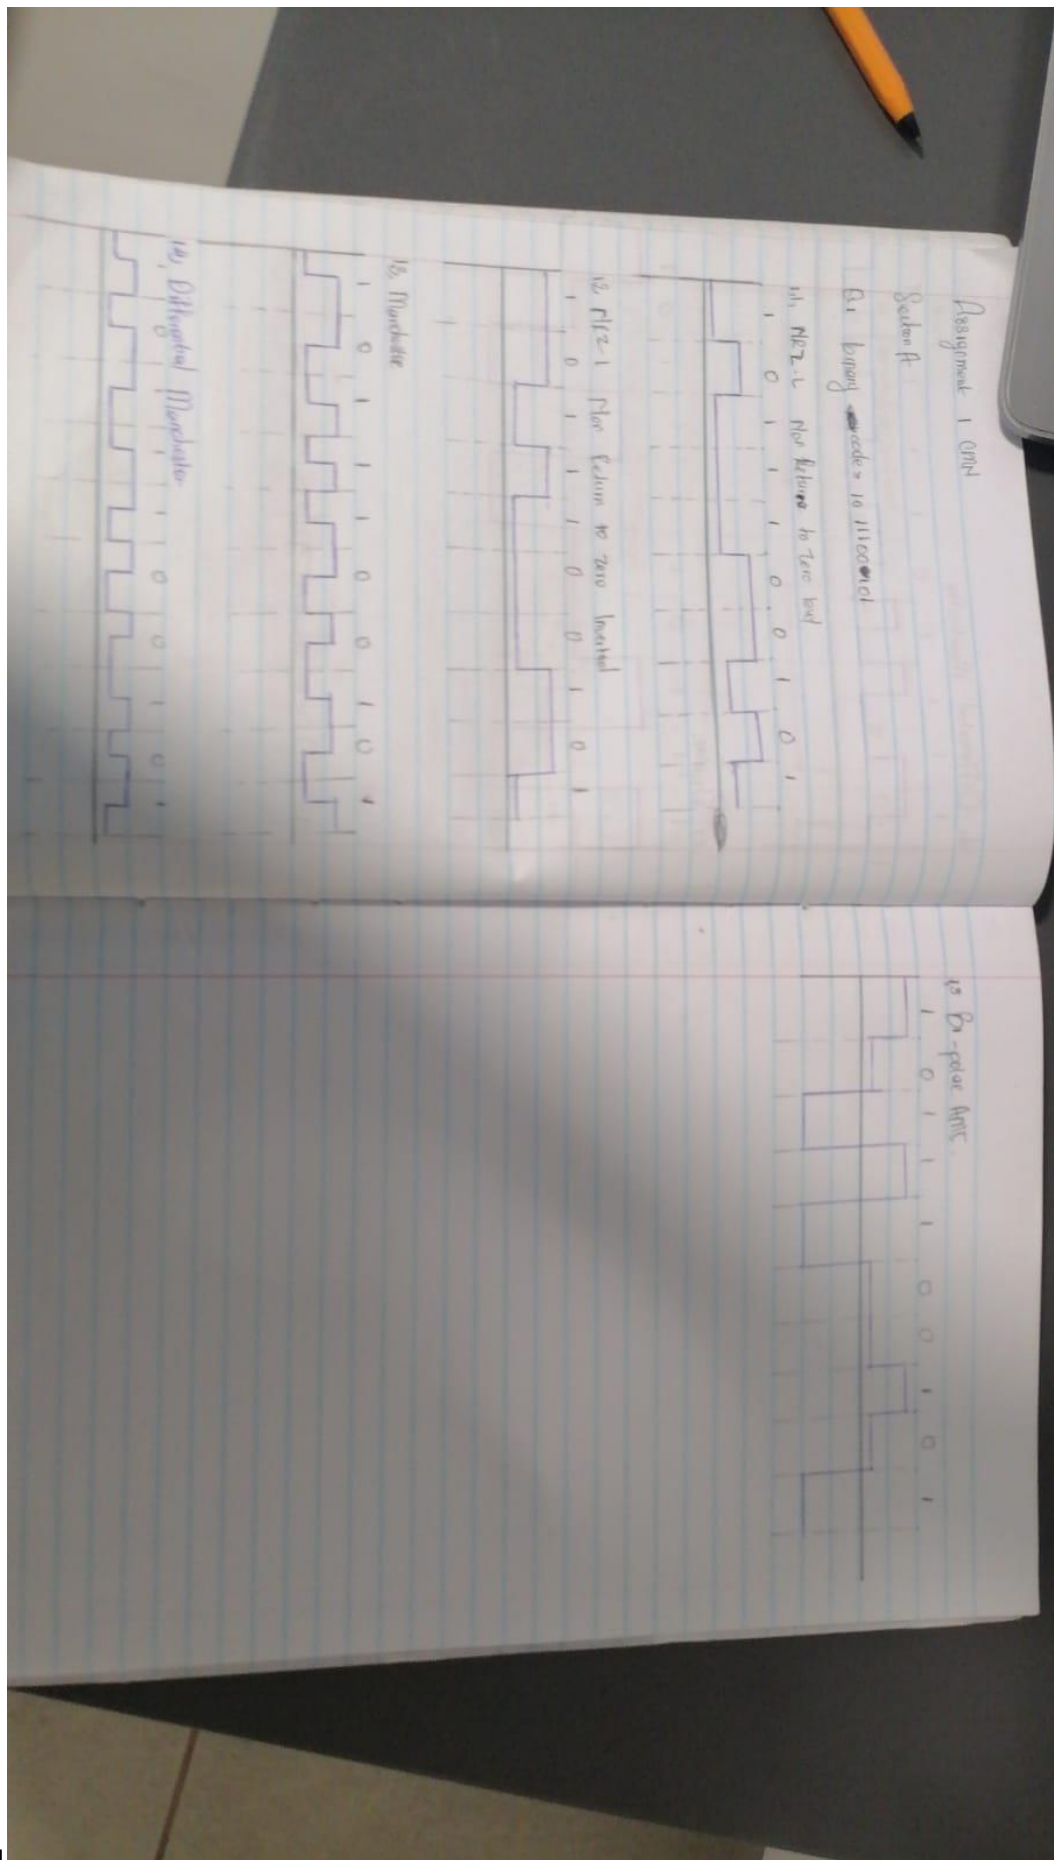 Assignment 1 CMN
Section A
Q1 binary code = 1011100101
1.1, NRZ-L Non Returne to Zero
1 0 1 1 1 0 0 1 0 1
1.2, NRZ-1 Non Return to Zero Inverted
1 0 1 1 1 0 0 1 0 1
1.3, Manchester
1 0 1 1 1 0 0 1 0 1
1.4, Differential Manchester
1 0 1 1 1 0 0 1 0 1
1.5 Bi-polar AMI
1 0 1 1 1 0 0 1 0 1